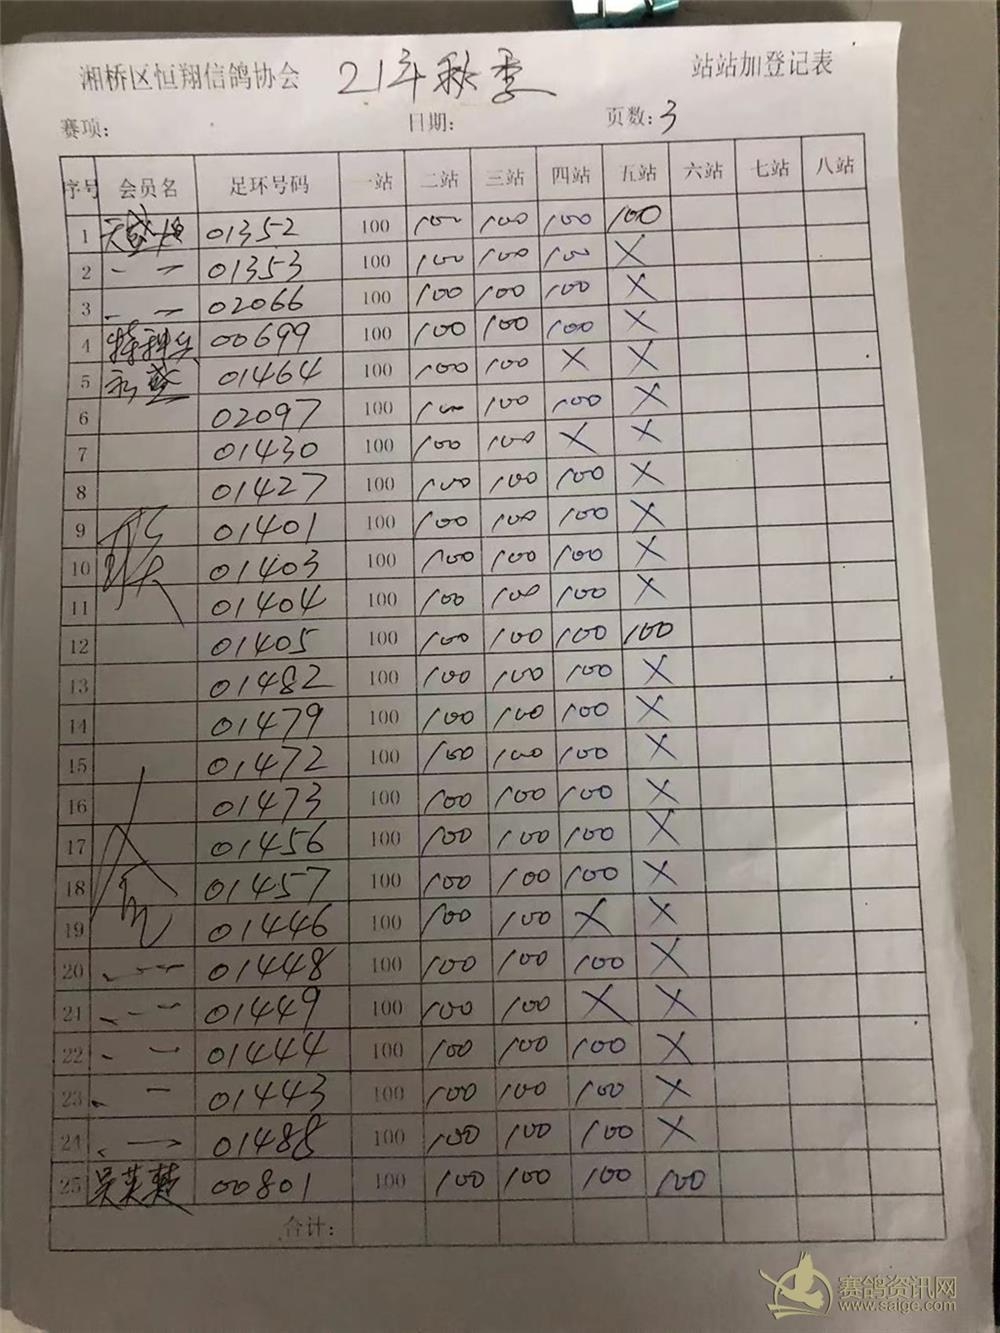 湘桥区恒翔信鸽协会 21年秋季 站站加登记表
赛项: 日期: 页数:3
序号 会员名 足环号码 一站 二站 三站 四站 五站 六站 七站 八站
1 01352 100 100 100 100 100
2 〃 01353 100 100 100 100 X
3 〃 02066 100 100 100 100 X
4 特种兵 00699 100 100 100 100 X
5 01464 100 100 100 X X
6 02097 100 100 100 100 X
7 01430 100 100 100 X X
8 01427 100 100 100 100 X
9 01401 100 100 100 100 X
10 01403 100 100 100 100 X
11 01404 100 100 100 100 X
12 01405 100 100 100 100 100
13 01482 100 100 100 100 X
14 01479 100 100 100 100 X
15 01472 100 100 100 100 X
16 01473 100 100 100 100 X
17 01456 100 100 100 100 X
18 01457 100 100 100 100 X
19 01446 100 100 100 X X
20 〃 01448 100 100 100 100 X
21 〃 01449 100 100 100 X X
22 〃 01444 100 100 100 100 X
23 〃 01443 100 100 100 100 X
24 〃 01488 100 100 100 100 X
25 00801 100 100 100 100 100
合计:
赛鸽资讯网
www.saige.com